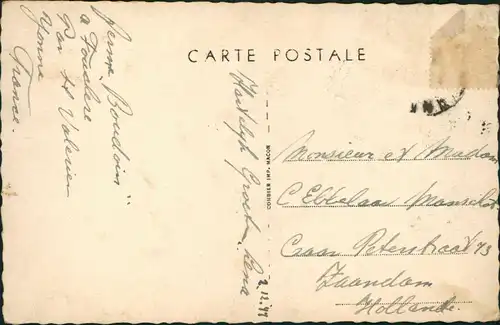 CARTE POSTALE
Ferme Boudoin"
a Fouchère
Par St Valérien
Yonne
France.
Hartelijk Groeten. Lena
2.12.48
COMBIER IMP. MACON
Monsieur et Madam
C Ebbelaar Manschot
Czaar Peterstraat 73
Zaandam
Hollande.